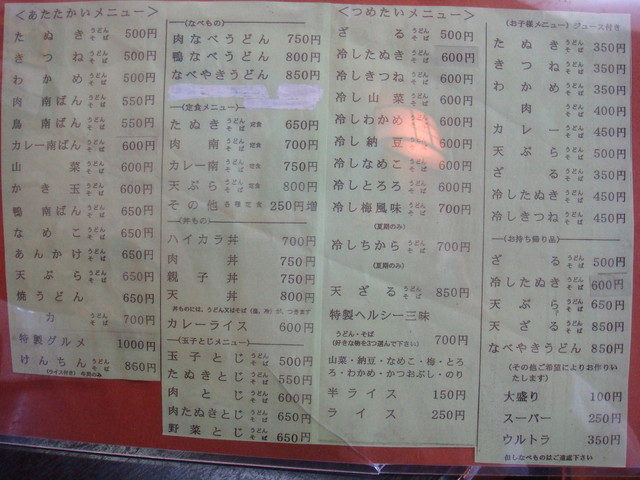 ＜あたたかいメニュー＞
たぬき うどん そば 500円
きつね うどん そば 500円
わかめ うどん そば 500円
肉南ばん うどん そば 550円
鳥南ばん うどん そば 550円
カレー南ばん うどん そば 600円
山菜 うどん そば 600円
かき玉 うどん そば 600円
鴨南ばん うどん そば 650円
なめこ うどん そば 650円
あんかけ うどん そば 650円
天ぷら うどん そば 650円
焼うどん 650円
力 うどん そば 700円
特製グルメ 1000円
けんちん うどん そば 860円
(ライス付き) 冬期のみ
(なべもの)
肉なべうどん 750円
鴨なべうどん 800円
なべやきうどん 850円
(定食メニュー)
たぬき うどん そば 定食 650円
肉南 うどん そば 定食 700円
カレー南 うどん そば 定食 750円
天ぷら うどん そば 定食 800円
その他 各種定食 250円増
(丼もの)
ハイカラ丼 700円
肉丼 750円
親子丼 750円
天丼 800円
丼ものには、うどん又はそば(温、冷)が、つきます
カレーライス 600円
(玉子とじメニュー)
玉子とじ うどん そば 500円
たぬきとじ うどん そば 550円
肉とじ うどん そば 600円
肉たぬきとじ うどん そば 650円
野菜とじ うどん そば 650円
＜つめたいメニュー＞
ざる うどん そば 500円
冷したぬき うどん そば 600円
冷しきつね うどん そば 600円
冷し山菜 うどん そば 600円
冷しわかめ うどん そば 600円
冷し納豆 うどん そば 600円
冷しなめこ うどん そば 600円
冷しとろろ うどん そば 600円
冷し梅風味 うどん そば 700円
(夏期のみ)
冷しちから うどん そば 700円
(夏期のみ)
天ざる うどん そば 850円
特製ヘルシー三昧
うどん・そば
(好きな物を3つ選んで下さい) 700円
山菜・納豆・なめこ・梅・とろ
ろ・わかめ・かつおぶし・のり
半ライス 150円
ライス 250円
(お子様メニュー)ジュース付き
たぬき うどん そば 350円
きつね うどん そば 350円
わかめ うどん そば 350円
肉 うどん そば 400円
カレー うどん そば 450円
天ぷら うどん そば 500円
ざる うどん そば 350円
冷したぬき うどん そば 450円
冷しきつね うどん そば 450円
(お持ち帰り品)
ざる うどん そば 500円
冷したぬき うどん そば 600円
天ぷら うどん そば 650円
天ざる うどん そば 850円
なべやきうどん 850円
(その他ご希望によりお作りい
たします)
大盛り 100円
スーパー 250円
ウルトラ 350円
但しなべものはご遠慮下さい